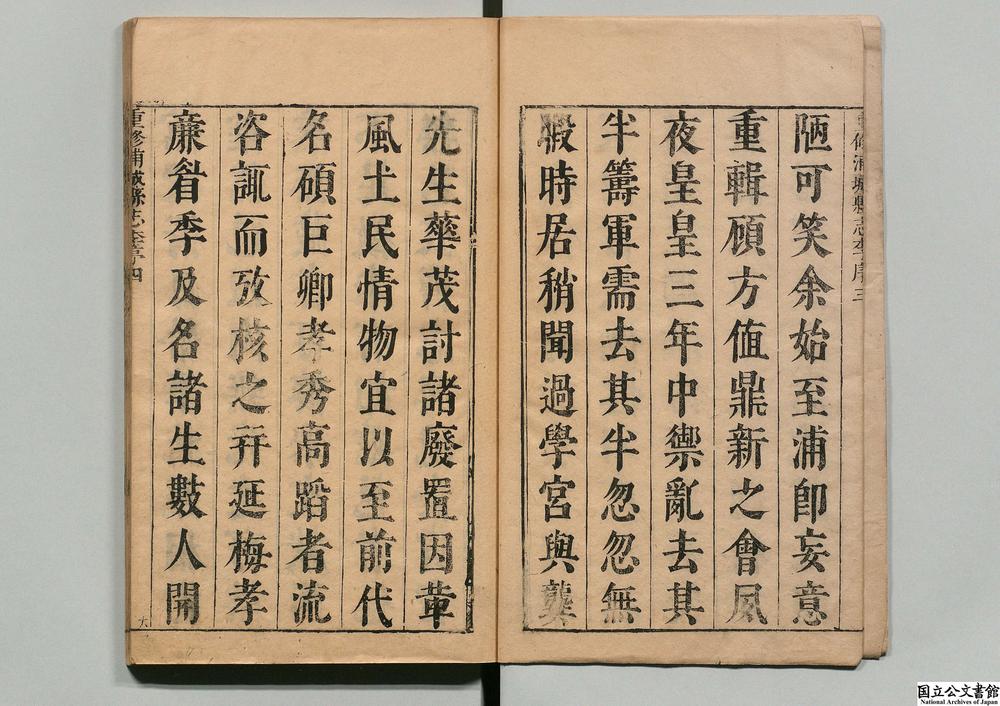 重修浦城縣志李序三
陋可笑余始至浦即妄意
重輯頋方值鼎新之會夙
夜皇皇三年中禦亂去其
半籌軍需去其半忽忽無
暇時居稍聞過學宮與龔
先生華茂討諸廢置因葷
風土民情物宜以至前代
名碩巨卿孝秀高蹈者流
咨諏而攷核之并延梅孝
亷眉季及名諸生數人開
重修浦城縣志李序四
六
国立公文書館
National Archives of Japan